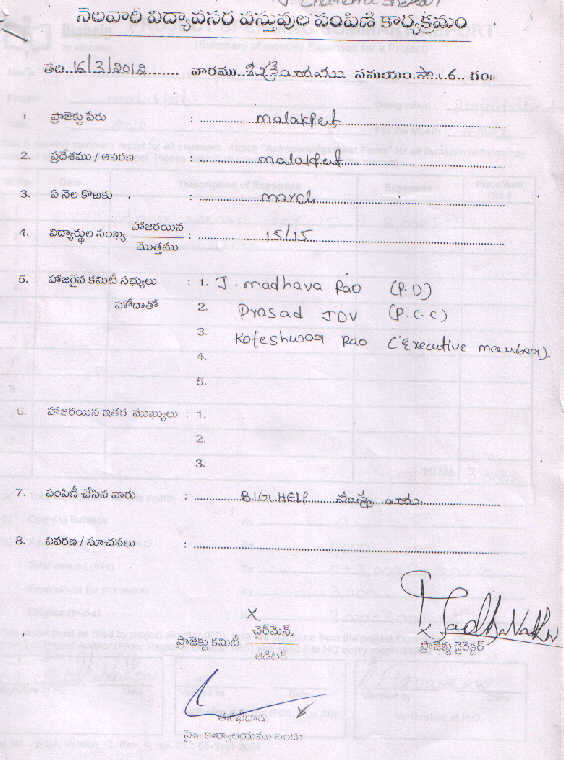 నెలవారి విద్యావసర వస్తువుల పంపిణీ కార్యక్రమం
తేది. 16/3/2012 ........ వారము.. శుక్రవారము సమయం సా. 6.. గం.
1. ప్రాజెక్టు పేరు : malakpet
2. ప్రదేశము / ఆవరణ : malakpet
3. ఏ నెల కొఱకు : march
4. విద్యార్థుల సంఖ్య హాజరయిన / మొత్తము : 15/15
5. హాజరైన కమిటీ సభ్యులు : 1. J. madhava Rao (P.D)
హోదాతో 2. Prasad JDV (P.C.C)
3. Koteshwara Rao (Executive member)
4.
5.
6. హాజరయిన ఇతర ముఖ్యులు : 1.
2.
3.
7. పంపిణీ చేసిన వారు : BIG HELP
8. వివరణ / సూచనలు :
ప్రాజెక్టు కమిటీ ఛైర్‌మెన్. / ఆడిటర్
ప్రాజెక్టు డైరెక్టర్
తనిఖీదారు
హై. కార్యాలయము నందు